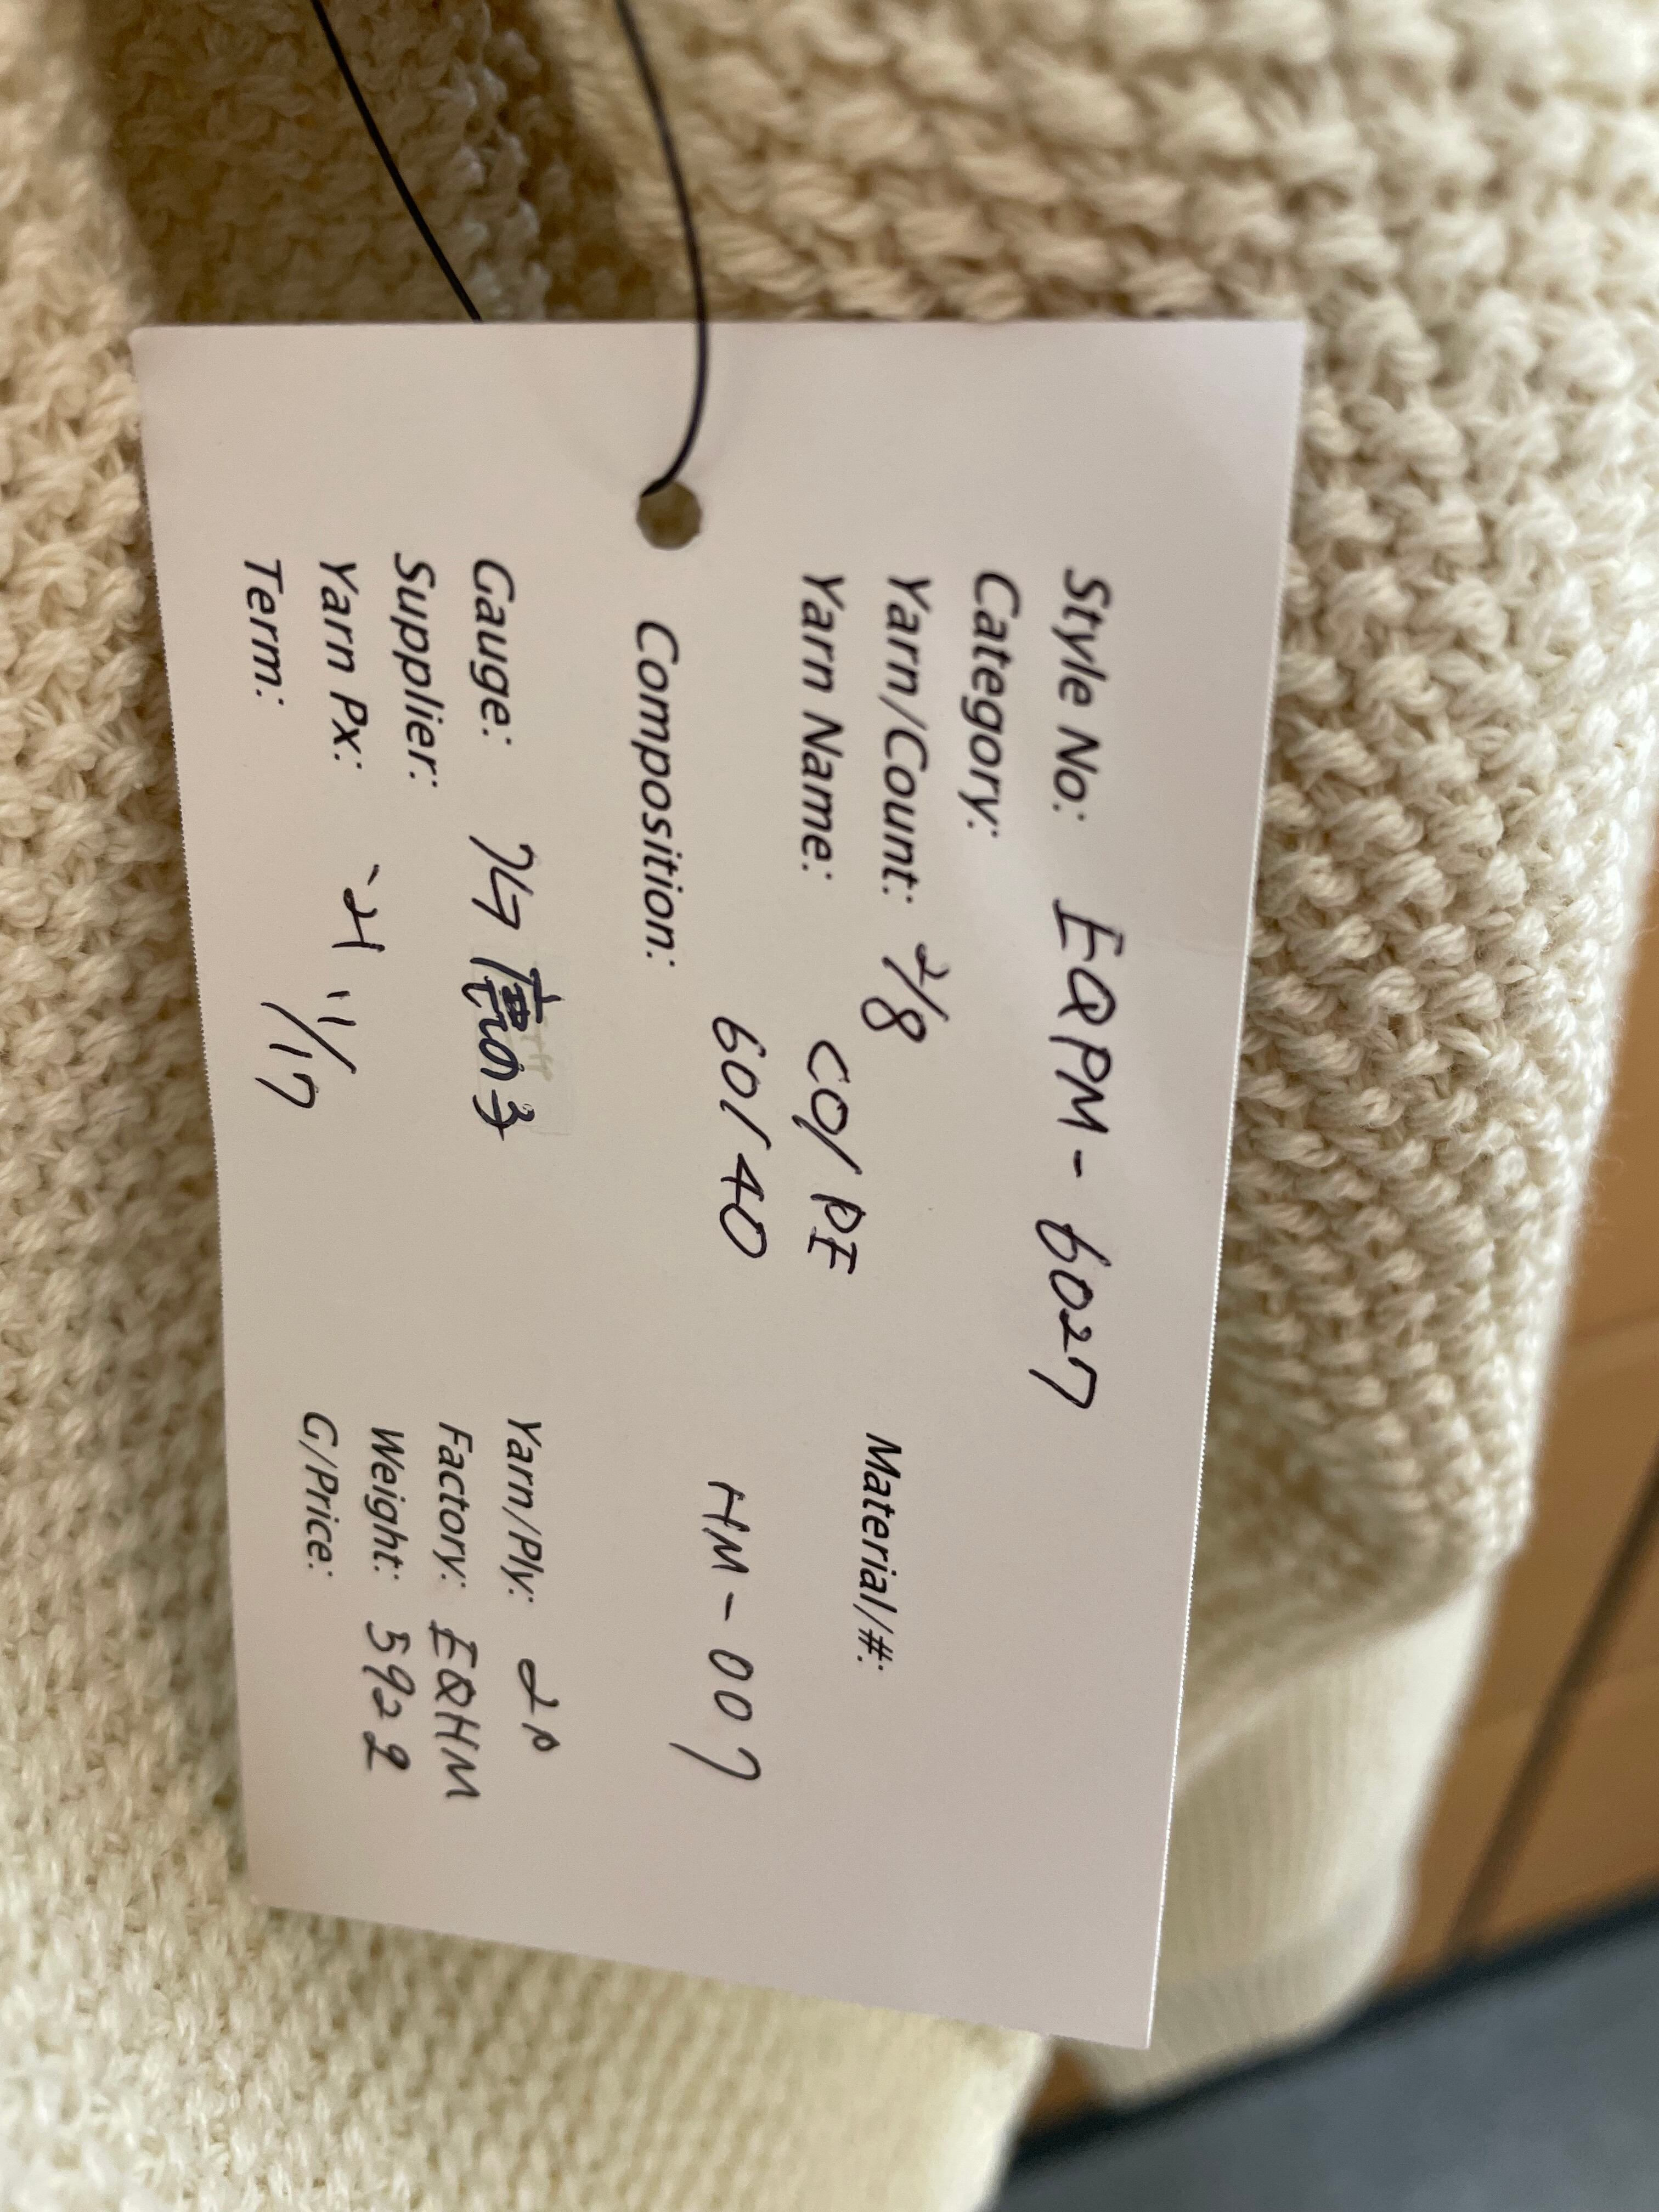 Style No: EQPM-6027
Category:
Yarn/Count: 2/8 Material/#:
Yarn Name: CO/PE
60/40 HM-007
Composition:
Gauge: Yarn/Ply: 2P
Supplier: Factory: EQHM
Yarn Px: Weight: 592g
Term: 1/17 G/Price: